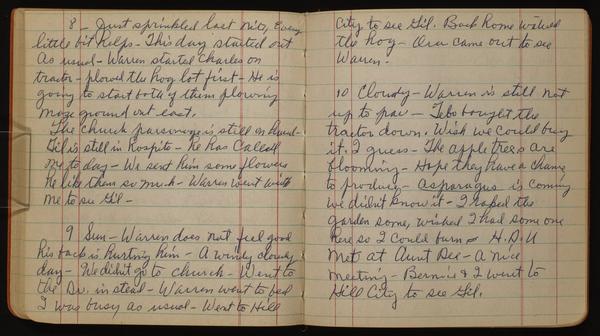 8 - Just sprinkled last nite, Every
little bit helps - This day started out
as usual - Warren started Charles on
tractor - plowed the hog lot first - He is
going to start both of them plowing
maze ground out east.
The church parsonage is still on hand -
Gil is still in hospitol - he has called
me to day - We sent him some flowers
he like them so much - Warren went with
me to see Gil -
9 Sun - Warren does not feel good
his back is hurting him - A windy cloudy
day - We didn't go to church - Went to
the Dr. in stead - Warren went to bed
I was busy as usual - Went to Hill
City to see Gil. Back home
the hog - Ora came out to see
Warren.
10 Cloudy - Warren is still not
up to par - Tebo bought the
tractor down. Wish we could buy
it. I guess - The apple trees are
blooming - Hope they have a chance
to produce - Asparagus is coming
we didn't know it - I raked the
garden some, wished I had some one
here so I could burn - H.D.U
met at Aunt Dee - A nice
meeting - Bernie & I went to
Hill City to see Gil.